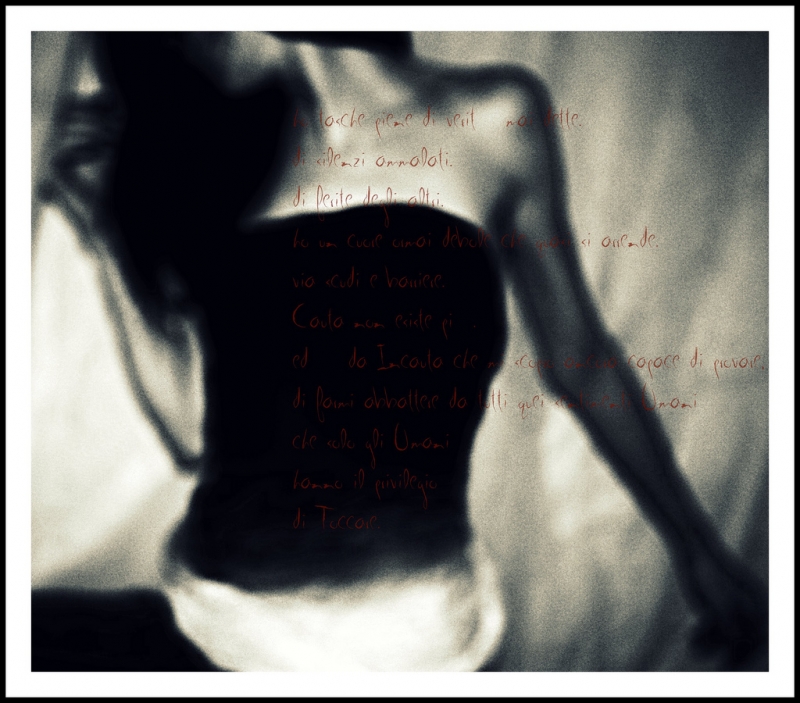 tasche piene di verit   mai dette.
di silenzi ammalati.
di ferite degli altri.
ho un cuore ormai debole che   si arrende.
via scudi e barriere.
Cauto non esiste pi  .
ed   da Incauto che   capace di provare.
di farmi abbattere da tutti quei   Umani
che solo gli Umani
hanno il privilegio
di Toccare.